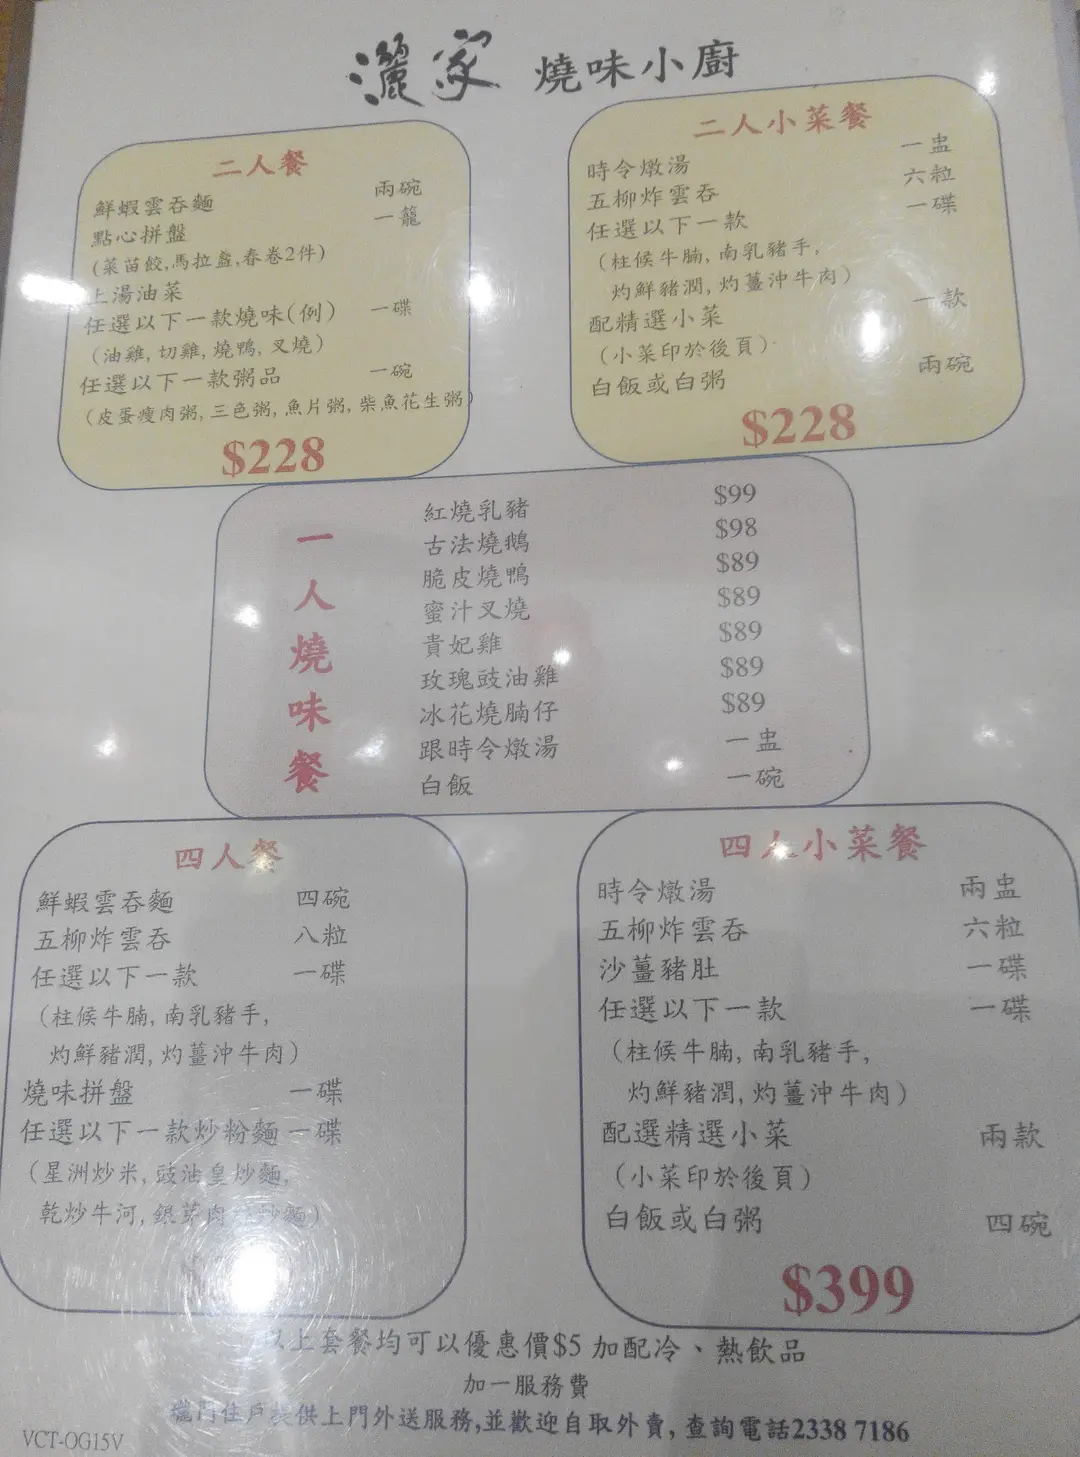 灑家 燒味小廚
二人餐
鮮蝦雲吞麵 兩碗
點心拼盤 一籠
(菜苗餃,馬拉盞,春卷2件)
上湯油菜
任選以下一款燒味(例) 一碟
(油雞, 切雞, 燒鴨, 叉燒)
任選以下一款粥品 一碗
(皮蛋瘦肉粥, 三色粥, 魚片粥, 柴魚花生粥)
$228
二人小菜餐
時令燉湯 一盅
五柳炸雲吞 六粒
任選以下一款 一碟
(柱候牛腩, 南乳豬手,
灼鮮豬潤, 灼薑沖牛肉)
配精選小菜 一款
(小菜印於後頁)
白飯或白粥 兩碗
$228
一人燒味餐
紅燒乳豬 $99
古法燒鵝 $98
脆皮燒鴨 $89
蜜汁叉燒 $89
貴妃雞 $89
玫瑰豉油雞 $89
冰花燒腩仔 $89
跟時令燉湯 一盅
白飯 一碗
四人餐
鮮蝦雲吞麵 四碗
五柳炸雲吞 八粒
任選以下一款 一碟
(柱候牛腩, 南乳豬手,
灼鮮豬潤, 灼薑沖牛肉)
燒味拼盤 一碟
任選以下一款炒粉麵 一碟
(星洲炒米, 豉油皇炒麵,
乾炒牛河, 銀芽肉 炒麵)
四人小菜餐
時令燉湯 兩盅
五柳炸雲吞 六粒
沙薑豬肚 一碟
任選以下一款 一碟
(柱候牛腩, 南乳豬手,
灼鮮豬潤, 灼薑沖牛肉)
配選精選小菜 兩款
(小菜印於後頁)
白飯或白粥 四碗
$399
以上套餐均可以優惠價$5 加配冷、熱飲品
加一服務費
住戶提供上門外送服務,並歡迎自取外賣, 查詢電話2338 7186
VCT-OG15V